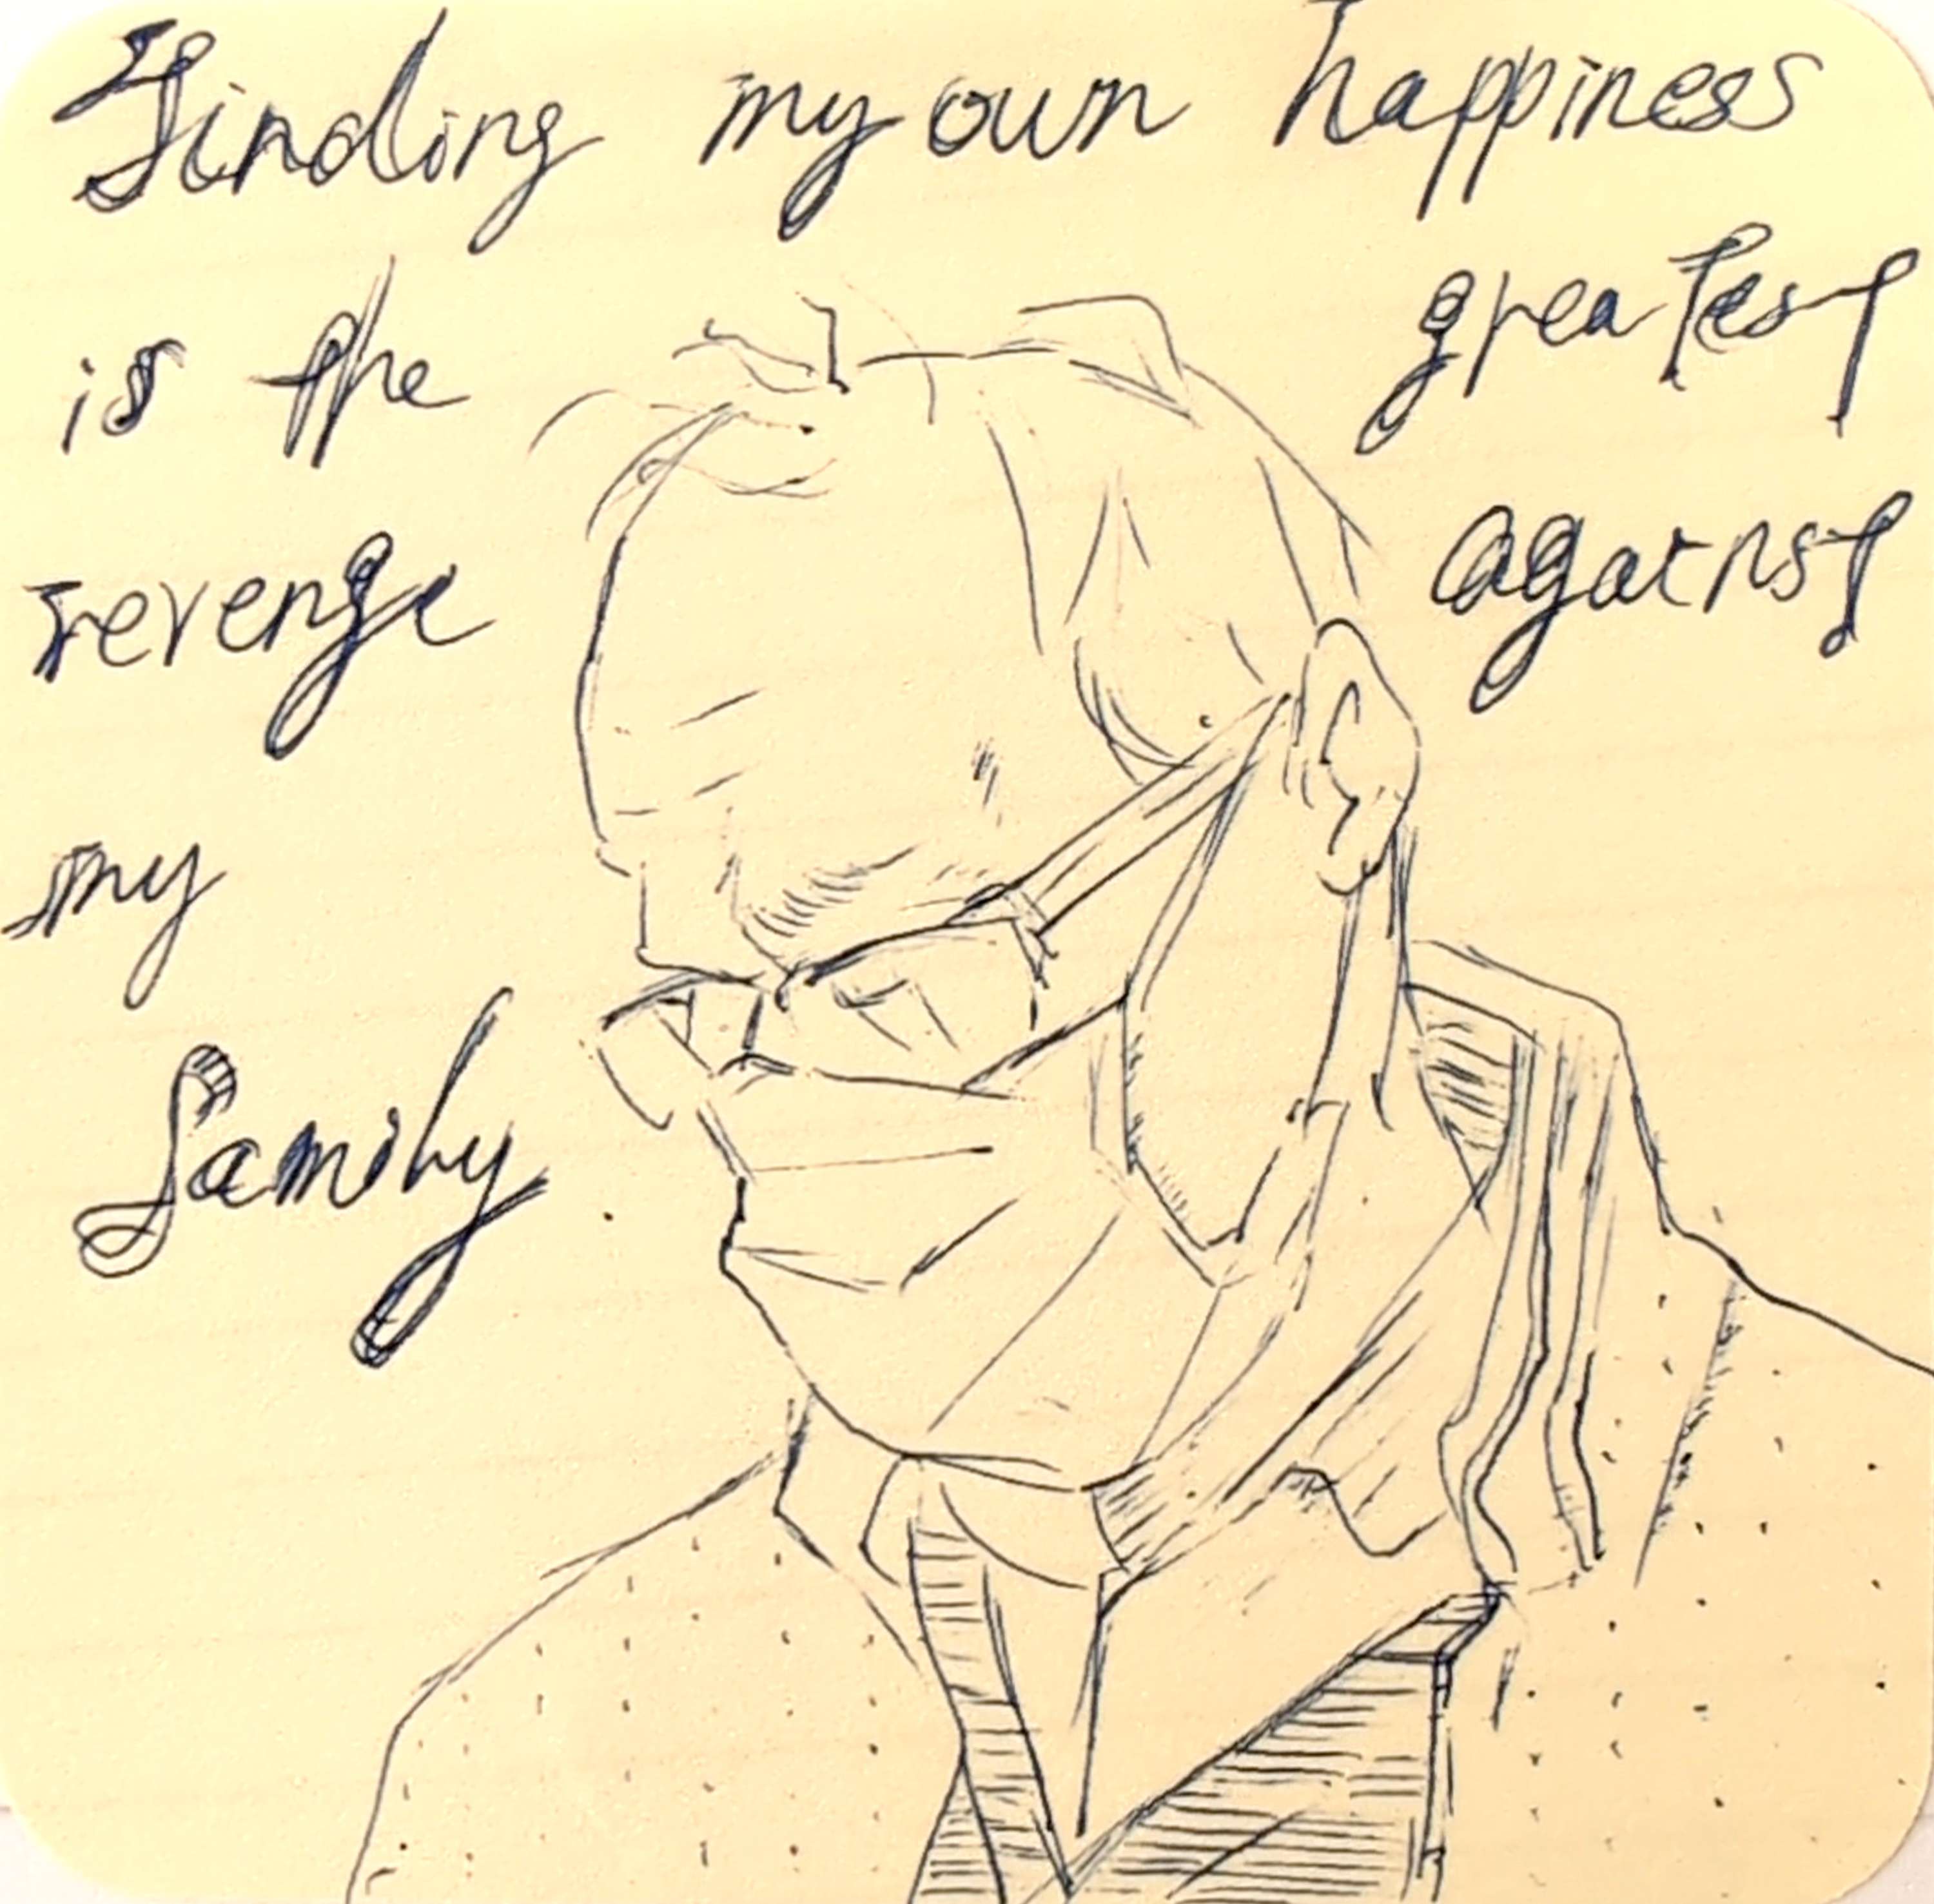 Finding my own happiness
is the greatest
revenge against
my
family